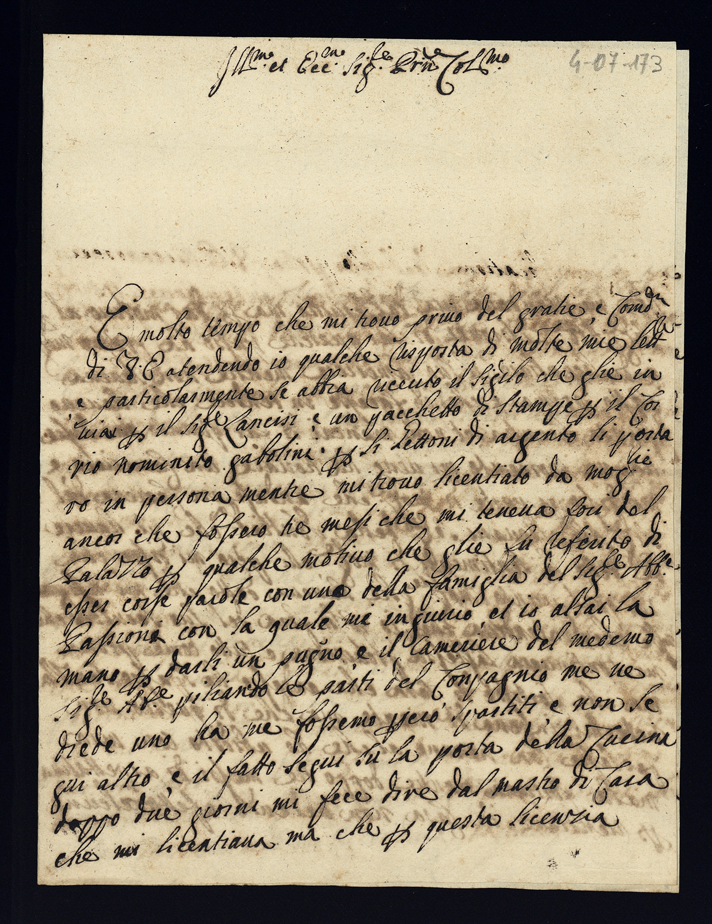 Ill.mo et Ecc.mo Sig.re Prñe Col.mo
4-07-173
E molto tempo che mi trovo privo del gratie, e Comdi
di V. E atendendo io qualche risposta di molte mie lett.re
e particolarmente se abbia riceuto il sigilo che glie in
viai ꝑ il sig.re Lancisi e un pacchetto di stampe ꝑ il Cor
rio nominito gabolini ꝑ li Lettoni di argento li porta
ro in persona mentre mi trovo licentiato da moglie
ancor che fossero tre mesi che mi teneva fori del
Palazzo ꝑ qualche motivo che glie fu referito di
esser corse parole con uno della famiglia del Sig.re Abb.e
Passionei con la quale mi ingiuriò, et io alsai la
mano ꝑ darli un pugno, e il Cameriere del medemo
Sig.re Ab.e piliando le parti del Compagnio me ne
diede uno ma fossemo ꝑciò spartiti e non se
gui altro, e il fatto segui sù la porta della Cucina
doppo due giorni mi fece dire dal mastro di Casa
che mi licentiava ma che ꝑ questa licenza